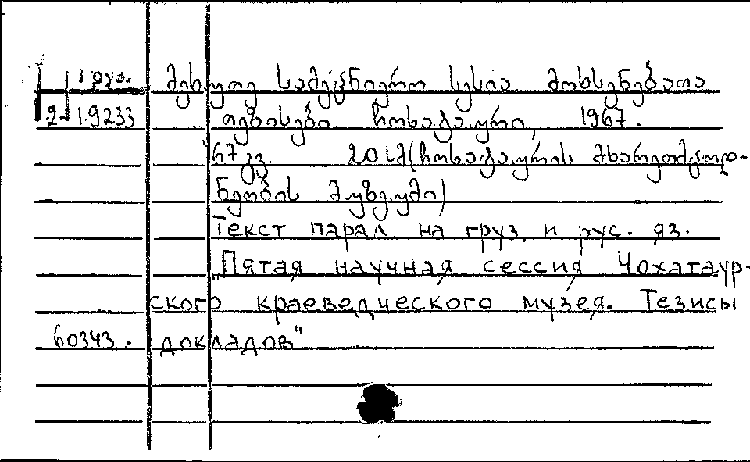 მეხუთე სამეცნიერო სესია მოხსენებათა
2-19233 თეზისები ჩოხატაური, 1967.
67 გვ. 20სმ (ჩოხატაურის მხარეთმცოდ-
ნეობის მუზეუმი)
Текст парал. на груз. и рус. яз.
"Пятая научная сессия Чохатаур-
ского краеведческого музея. Тезисы
60343. докладов"